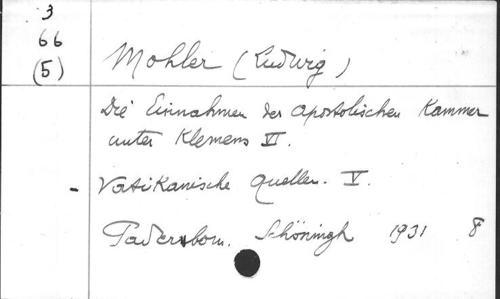 3
66
(5)
Mohler (Ludwig)
Die Einnahmen der apostolischen Kammer
unter Klemens VI.
- Vatikanische Quellen. V.
Paderborn. Schöningh 1931 8